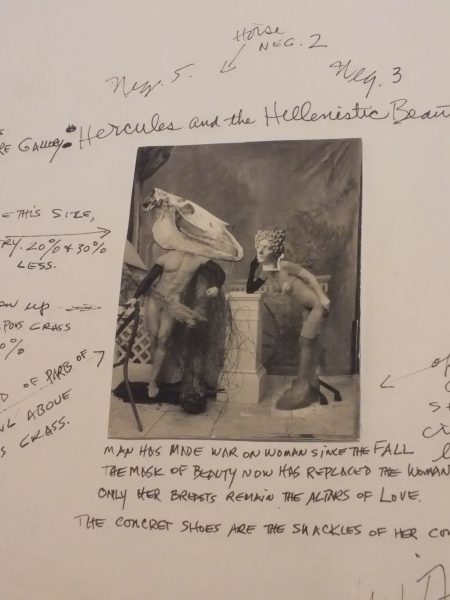 HORSE
NEG. 2
Neg. 5.
Neg. 3
RE GALLERY.
Hercules and the Hellenistic Beau
E THIS SIZE,
TRY. 20% & 30%
LESS.
UP
GRASS
0%
D OF PARTS OF
ABOVE
GRASS.
MAN HAS MADE WAR ON WOMAN SINCE THE FALL
THE MASK OF BEAUTY NOW HAS REPLACED THE WOMAN
ONLY HER BREASTS REMAIN THE ALTARS OF LOVE.
THE CONCRET SHOES ARE THE SHACKLES OF HER CO